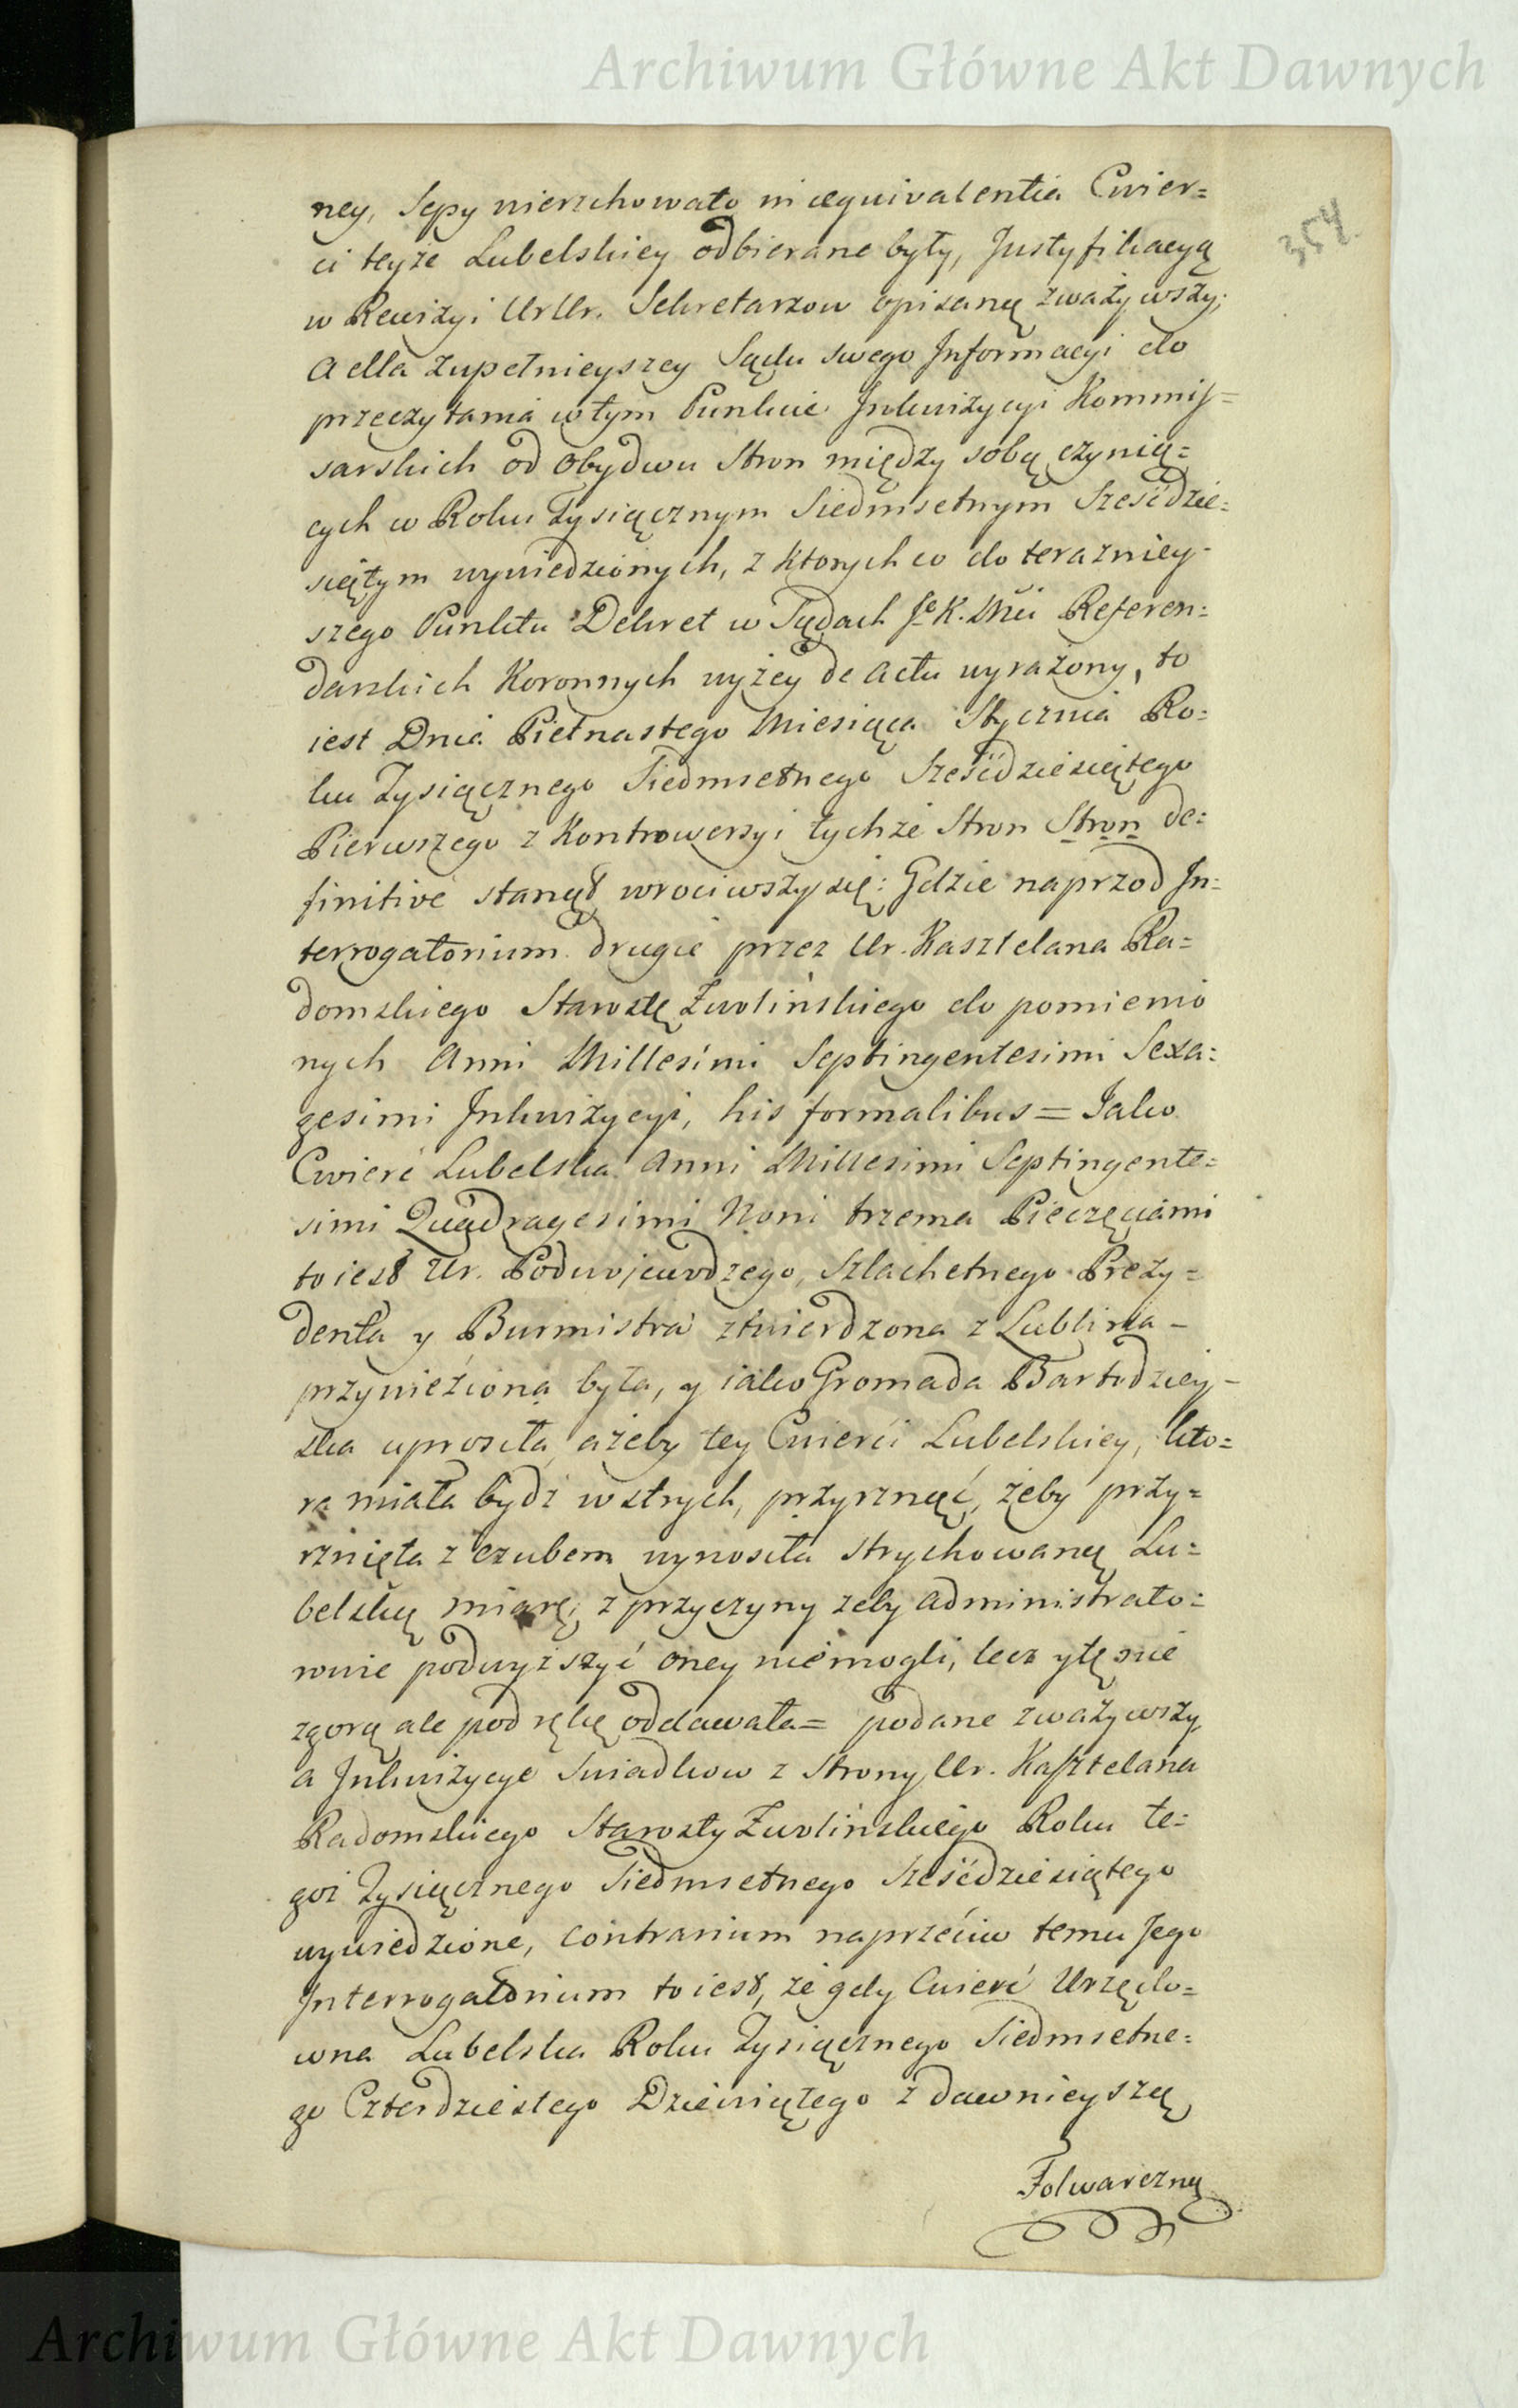 Archiwum Główne Akt Dawnych
354.
ney, Sepy wierzchowato in aequivalentia Cwier=
ci teyże Lubelskiey odbierane były, Justyfikacyą
w Rewizyi UrUr. Sekretarzow opisaną zważywszy;
a dla zupełnieyszey Sądu swego Informacyi do
przeczytania w tym Punkcie Inkwizycyi Kommis=
sarskich od obydwu Stron między sobą czynią=
cych w Roku Tysiącznym Siedmsetnym Sześćdzie=
siątym wywiedzionych, z ktorych co do teraźniey=
szego Punktu Dekret w Sądach Je K. Mći Referen=
darskich Koronnych wyżey de actu wyrażony, to
iest Dnia Piętnastego Miesiąca Stycznia Ro=
ku Tysiącznego Siedmsetnego Sześćdziesiątego
Pierwszego z Kontrowersyi tychże Stron Stron de=
finitive stanął, wrociwszy się: Gdzie naprzod In=
terrogatorium drugie przez Ur. Kasztelana Ra=
domskiego Starostę Zwolińskiego do pomienio
nych Anni Millesimi Septingentesimi Sexa=
gesimi Inkwizycyi, his formalibus = Jako
Cwierć Lubelska Anni Millesimi Septingente=
simi Quadragesimi Noni trzema Pieczęciami
to iest Ur. Podwojewodzego, Szlachetnego Prezy=
denta y Burmistra ztwierdzona z Lublina -
przywieziona była, y iako Gromada Bartodziey-
ska uprosiła, ażeby tey Cwierci Lubelskiey, kto=
ra miała bydz w strych, przyrznąć, żeby przy=
rznięta z czubem wynosiła strychowaną Lu=
belską miarę; z przyczyny zeby administrato=
rowie podwyższyć oney niemogli, lecz y tę nie
zgorą ale pod rękę oddawała = podane zważywszy
a Inkwizycye Swiadkow z Strony Ur. Kasztelana
Radomskiego Starosty Zwolińskiego Roku te=
goż Tysiącznego Siedmsetnego Sześćdziesiątego
wywiedzione, contrarium naprzećiw temu Jego
Interrogatorium to iest, że gdy Cwierć Urzędo=
wna Lubelska Roku Tysiącznego Siedmsetne=
go Czterdziestego Dziewiątego z dawnieyszą
Folwarczną
Archiwum Główne Akt Dawnych